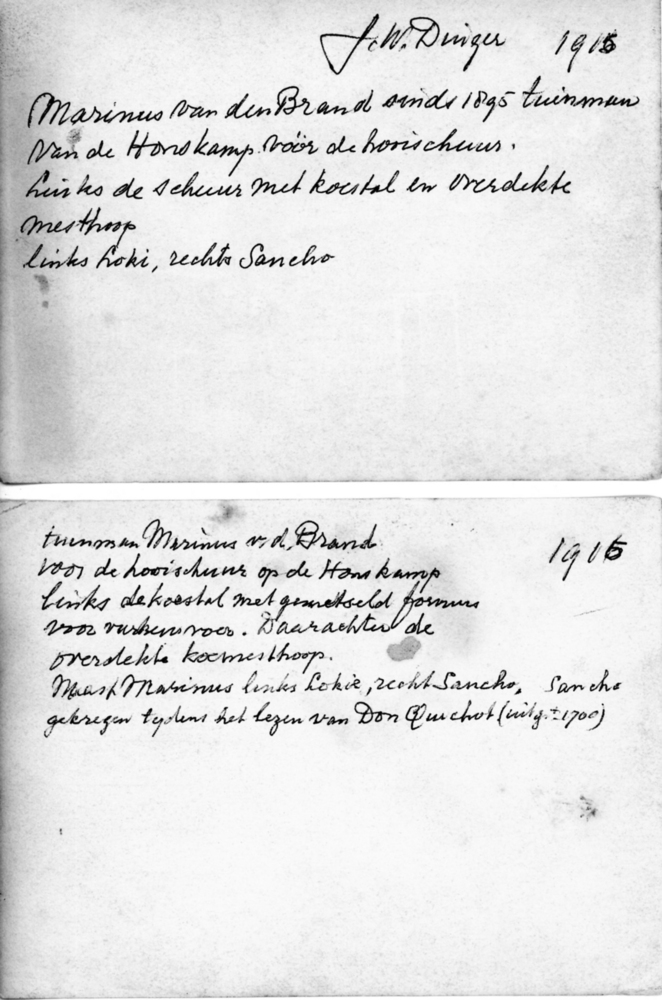 J. W. Dinger 1915
Marinus van den Brand sinds 1895 tuinman
van de Honskamp vóór de hooischuur.
Links de schuur met koestal en overdekte
mesthoop
links Loki, rechts Sancho
tuinman Marinus v. d. Brand
1915
voor de hooischuur op de Honskamp
links de koestal met gemetseld fornuis
voor varkensvoer. Daarachter de
overdekte koemesthoop.
Naast Marinus links Lokie, recht Sancho, Sancho
gekregen tydens het lezen van Don Quichot (uitg. ± 1700)